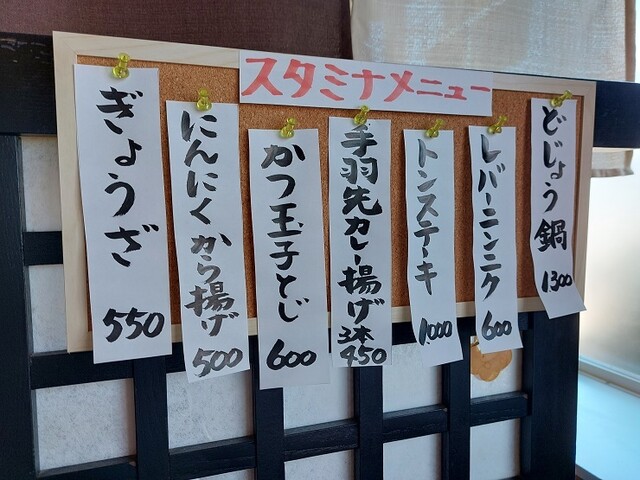 スタミナメニュー
どじょう鍋
1300
レバーニンニク
600
トンステーキ
1000
手羽先カレー揚げ
3本
450
かつ玉子とじ
600
にんにくから揚げ
500
ぎょうざ
550